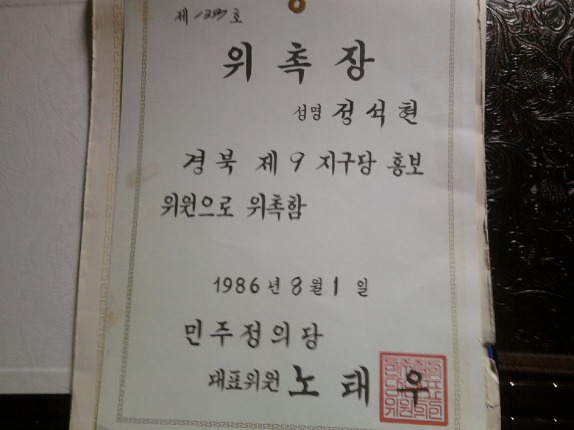 제 1387 호
위 촉 장
성명 정 석 현
경북 제 9 지구당 홍보
위원으로 위촉함
1986 년 8 월 1 일
민주정의당
대표위원 노 태 우